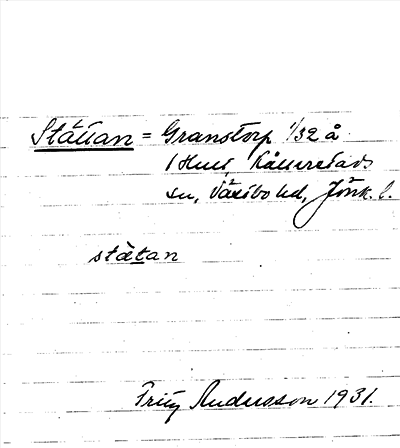 Stättan = Granstorp 1/32 å
1 Hult, Kållerstads
sn, Västbo hd, Jönk. l.
stätan
Fritz Andersson 1931.